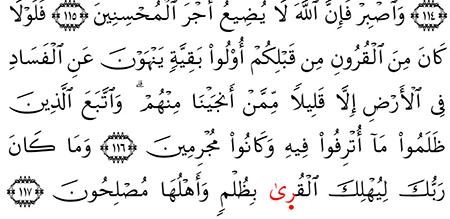 ﴿١١٤﴾ وَٱصۡبِرۡ فَإِنَّ ٱللَّهَ لَا يُضِيعُ أَجۡرَ ٱلۡمُحۡسِنِينَ ﴿١١٥﴾ فَلَوۡلَا
كَانَ مِنَ ٱلۡقُرُونِ مِن قَبۡلِكُمۡ أُوْلُواْ بَقِيَّةٖ يَنۡهَوۡنَ عَنِ ٱلۡفَسَادِ
فِي ٱلۡأَرۡضِ إِلَّا قَلِيلٗا مِّمَّنۡ أَنجَيۡنَا مِنۡهُمۡۗ وَٱتَّبَعَ ٱلَّذِينَ
ظَلَمُواْ مَآ أُتۡرِفُواْ فِيهِ وَكَانُواْ مُجۡرِمِينَ ﴿١١٦﴾ وَمَا كَانَ
رَبُّكَ لِيُهۡلِكَ ٱلۡقُرىٰ بِظُلۡمٖ وَأَهۡلُهَا مُصۡلِحُونَ ﴿١١٧﴾